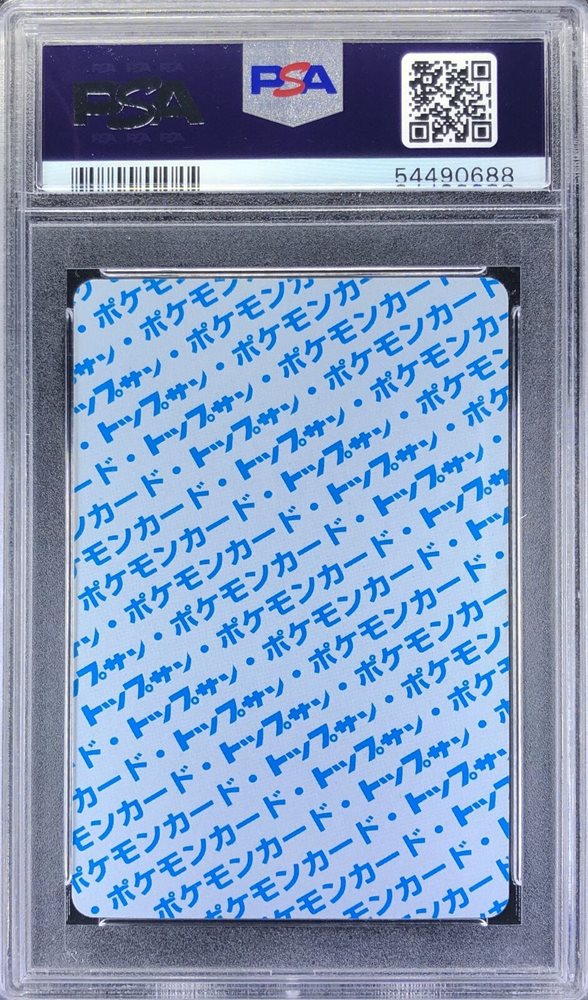 PSA
PSA
54490688
・ポケモ
サン・ポケモンカ
ップサン・ポケモンカー
・トップサン・ポケモンカー
ド・トップサン・ポケモンカー
カード・トップサン・ポケモンカ
モンカード・トップサン・ポケモン
ポケモンカード・トップサン・ポケ
・ポケモンカード・トップサン・
サン・ポケモンカード・トップサン
ップサン・ポケモンカード・トッ
トップサン・ポケモンカード・
ド・トップサン・ポケモンカード
カード・トップサン・ポケモンカ
モンカード・トップサン・ポケモン
ケモンカード・トップサン・ポケ
・ポケモンカード・トップサン・
ポケモンカード・トップサン
ポケモンカード・
モンカード